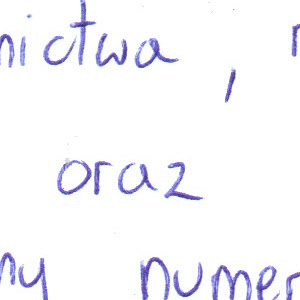 nictwa,
oraz
ny numer